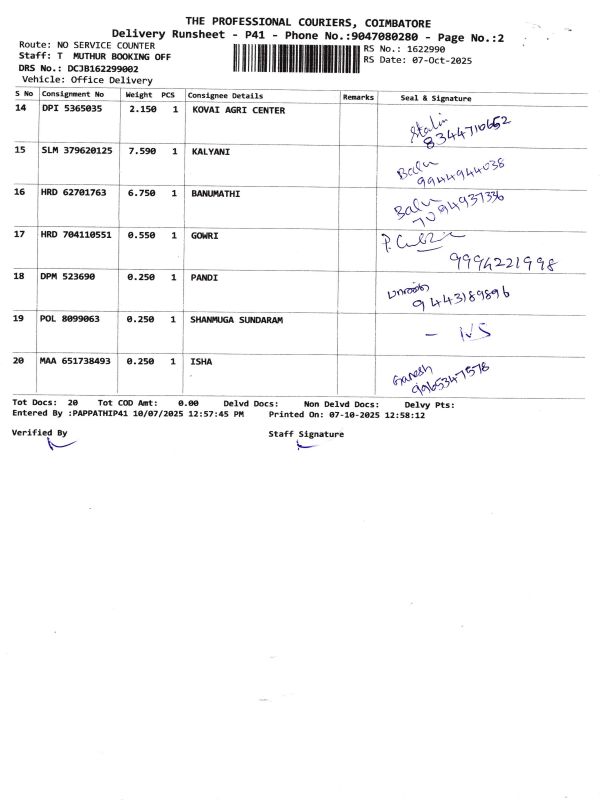 THE PROFESSIONAL COURIERS, COIMBATORE
Delivery Runsheet - P41 - Phone No.:9047080280 - Page No.:2
Route: NO SERVICE COUNTER
Staff: T MUTHUR BOOKING OFF
DRS No.: DCJB162299002
Vehicle: Office Delivery
RS No.: 1622990
RS Date: 07-Oct-2025
S No Consignment No Weight PCS Consignee Details Remarks Seal & Signature
14 DPI 5365035 2.150 1 KOVAI AGRI CENTER Stalin
8344710652
15 SLM 379620125 7.590 1 KALYANI Balu
9944944038
16 HRD 62701763 6.750 1 BANUMATHI Balu
7094937336
17 HRD 704110551 0.550 1 GOWRI
9994221998
18 DPM 523690 0.250 1 PANDI
9443189896
19 POL 8099063 0.250 1 SHANMUGA SUNDARAM
20 MAA 651738493 0.250 1 ISHA Ganesh
9965347578
Tot Docs: 20 Tot COD Amt: 0.00 Delvd Docs: Non Delvd Docs: Delvy Pts:
Entered By :PAPPATHIP41 10/07/2025 12:57:45 PM Printed On: 07-10-2025 12:58:12
Verified By Staff Signature